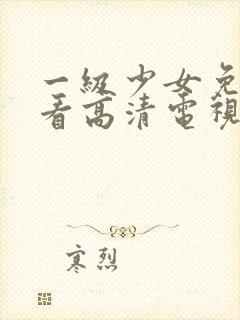 一級少女免
看高清電視
寒烈